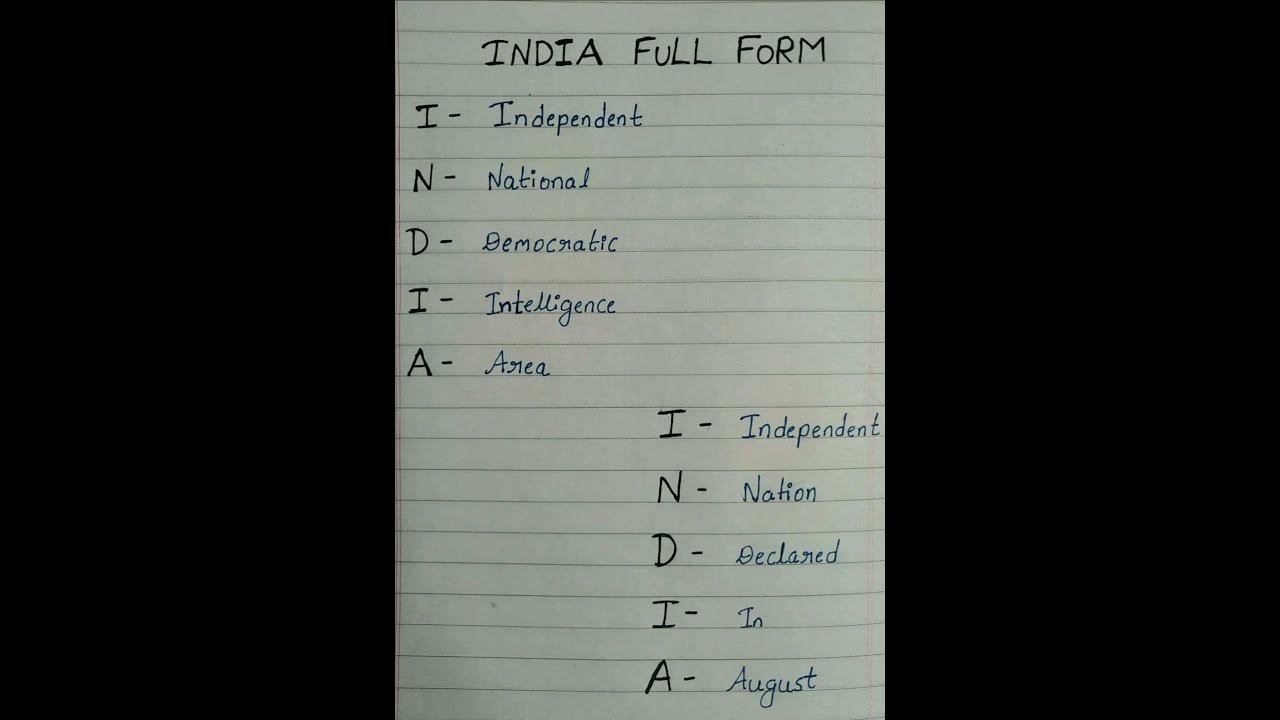 INDIA FULL FORM
I - Independent
N - National
D - Democratic
I - Intelligence
A - Area
I - Independent
N - Nation
D - Declared
I - In
A - August